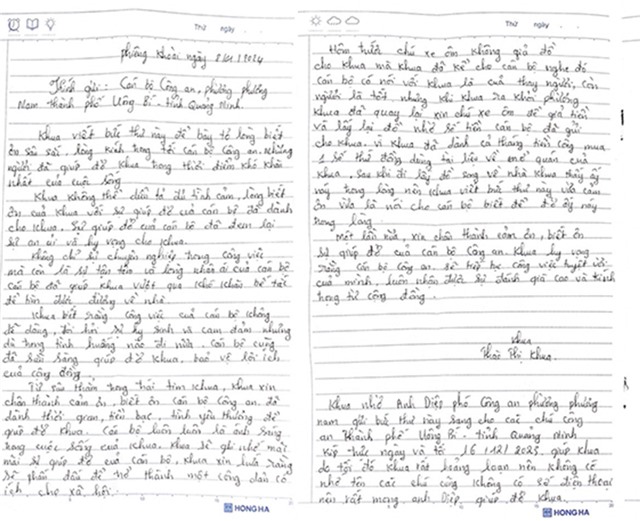 Thứ ngày
phường Khoài ngày 8/01/2024
Kính gửi: Cán bộ Công an, phường phương
Nam thành phố Uông Bí - tỉnh Quảng Ninh.
Khua viết bức thư này để bày tỏ lòng biết
ơn sâu sắc, lòng kính trọng tới cán bộ Công an. Những
người đã giúp đỡ Khua trong thời điểm khó khăn
nhất của cuộc sống
Khua không thể diễn tả đủ tình cảm, lòng biết
ơn của Khua với sự giúp đỡ của cán bộ đã dành
cho Khua. Sự giúp đỡ của cán bộ đã đem lại
sự an ủi và hy vọng cho Khua.
Không chỉ sự chuyên nghiệp trong công việc
mà còn là sự tận tâm và lòng nhân ái của cán bộ
cán bộ đã giúp Khua vượt qua khó khăn bế tắc
để tìm được đường về nhà.
Khua biết rằng công việc của cán bộ không
dễ dàng, đòi hỏi sự hy sinh và can đảm nhưng
dù trong tình huống nào đi nữa. Cán bộ cũng
đã sẵn sàng giúp đỡ Khua, bảo vệ lợi ích
của cộng đồng.
Từ sâu thẳm trong trái tim Khua, Khua xin
chân thành cảm ơn, biết ơn cán bộ Công an. đã
dành thời gian, tiền bạc, tình yêu thương để
giúp đỡ Khua. Cán bộ luôn luôn là ánh sáng
trong cuộc sống của Khua. Khua sẽ ghi nhớ mãi
mãi sự giúp đỡ của cán bộ. Khua xin hứa rằng
sẽ phấn đấu để trở thành một công dân có
ích cho xã hội.
HONG HA
Thứ ngày
Hôm trước chú xe ôm không giả đồ
cho Khua mà Khua đã kể cho cán bộ nghe đó
Cán bộ có nói với Khua là cưa thay người, còn
người là tốt nhưng khi Khua ra khỏi phường
Khua đã quay lại, xin chú xe ôm để giả tiền
và lấy lại đồ nhờ số tiền cán bộ đã gửi
cho Khua. vì Khua để dành cả tháng tiền công mua
1 số thứ đồng dùng tài liệu về mở quán của
Khua, sau khi đi lấy đồ song về nhà Khua thấy áy
náy trong lòng nên Khua viết bức thư này vừa cảm
ơn vừa là nói cho cán bộ biết để đỡ áy náy
trong lòng.
Một lần nữa, xin chân thành cảm ơn, biết ơn
sự giúp đỡ của cán bộ Công an. Khua hy vọng
rằng cán bộ Công an. sẽ tiếp tục công việc tuyệt vời
của mình, luôn nhận được sự đánh giá cao và kính
trọng từ cộng đồng.
Khua
Thào Thị Khua.
Khua nhờ Anh Diệp phó Công an phường phương
nam gửi bức thư này sang cho các chú công
an thành phố Uông Bí. tỉnh Quảng Ninh
Kíp trực ngày và tối 16/12/2023. giúp Khua
do tối đó Khua rất hoảng loạn nên không có
nhớ tên các chú cũng không có số điện thoại
nên rất mong anh Diệp, giúp đỡ Khua.
HONG HA